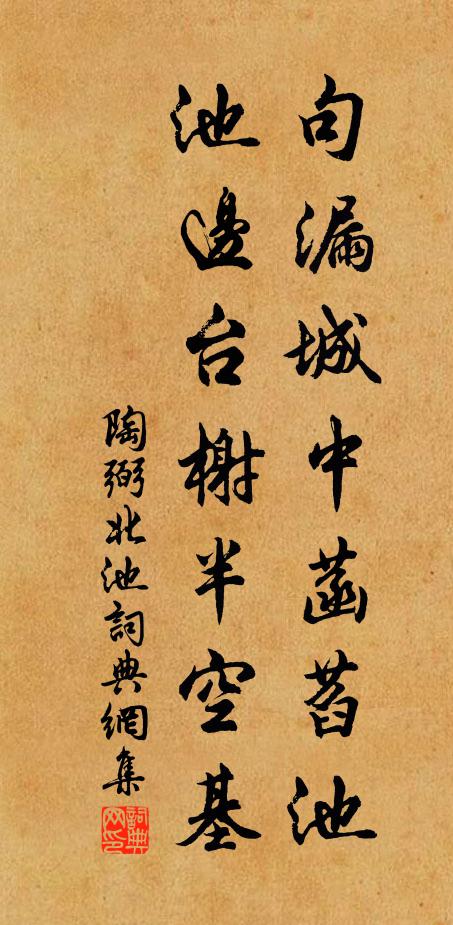 句漏城中菡萏池
池邊台榭半空基
陶弼北池詞典網集
詞典
网印